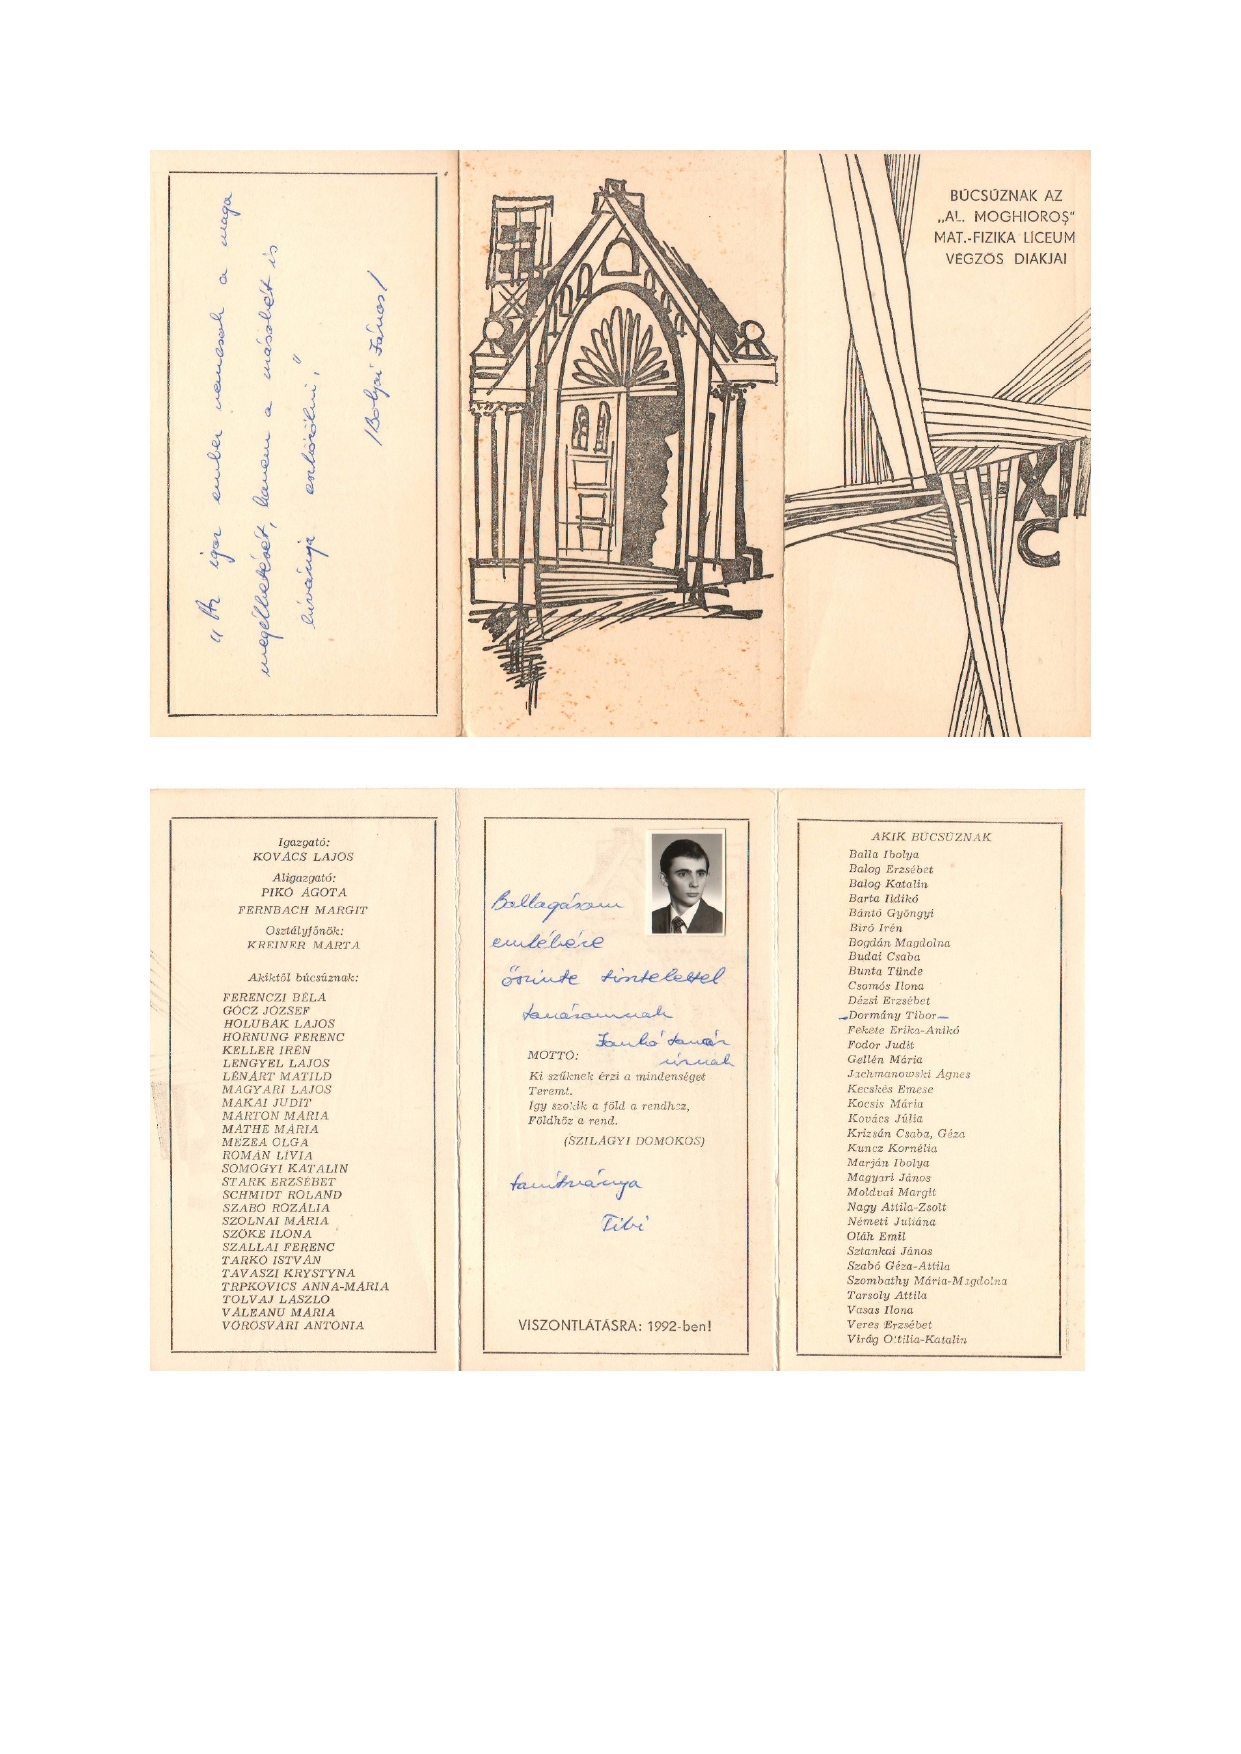 „Az igaz ember nemcsak a maga
megélhetését, hanem a másokét is
kívánja
/Bolyai János/
BÚCSÚZNAK AZ
„AL. MOGHIOROȘ"
MAT.-FIZIKA LÍCEUM
VÉGZŐS DIÁKJAI
XII
C
Igazgató:
KOVÁCS LAJOS
Aligazgató:
PIKÓ ÁGOTA
FERNBACH MARGIT
Osztályfőnök:
KREINER MÁRTA
Akiktől búcsúznak:
FERENCZI BÉLA
GÓCZ JÓZSEF
HOLUBÁK LAJOS
HORNUNG FERENC
KELLER IRÉN
LENGYEL LAJOS
LÉNÁRT MATILD
MAGYARI LAJOS
MAKAI JUDIT
MÁRTON MÁRIA
MÁTHÉ MÁRIA
MEZEA OLGA
ROMÁN LÍVIA
SOMOGYI KATALIN
STARK ERZSÉBET
SCHMIDT ROLAND
SZABÓ ROZÁLIA
SZOLNAI MÁRIA
SZŐKE ILONA
SZÁLLAI FERENC
TARKÓ ISTVÁN
TAVASZI KRYSTYNA
TRPKOVICS ANNA-MÁRIA
TOLVAJ LÁSZLÓ
VĂLEANU MÁRIA
VÖRÖSVÁRI ANTÓNIA
Ballagásom
emlékére
őszinte tisztelettel
tanáromnak
Jankó tanár
úrnak
MOTTÓ:
Ki szűknek érzi a mindenséget
Teremt.
Így szokik a föld a rendhez,
Földhöz a rend.
(SZILÁGYI DOMOKOS)
tanítványa
Tibi
VISZONTLÁTÁSRA: 1992-ben!
AKIK BÚCSÚZNAK
Balla Ibolya
Balog Erzsébet
Balog Katalin
Barta Ildikó
Bántó Gyöngyi
Bíró Irén
Bogdán Magdolna
Budai Csaba
Bunta Tünde
Csomós Ilona
Dézsi Erzsébet
Dormány Tibor
Fekete Erika-Anikó
Fodor Judit
Gellén Mária
Jachmanowski Ágnes
Kecskés Emese
Kocsis Mária
Kovács Júlia
Krizsán Csaba, Géza
Kuncz Kornélia
Marján Ibolya
Magyari János
Moldvai Margit
Nagy Attila-Zsolt
Németi Juliána
Oláh Emil
Sztankai János
Szabó Géza-Attila
Szombathy Mária-Magdolna
Tarsoly Attila
Vasas Ilona
Veres Erzsébet
Virág Ottilia-Katalin